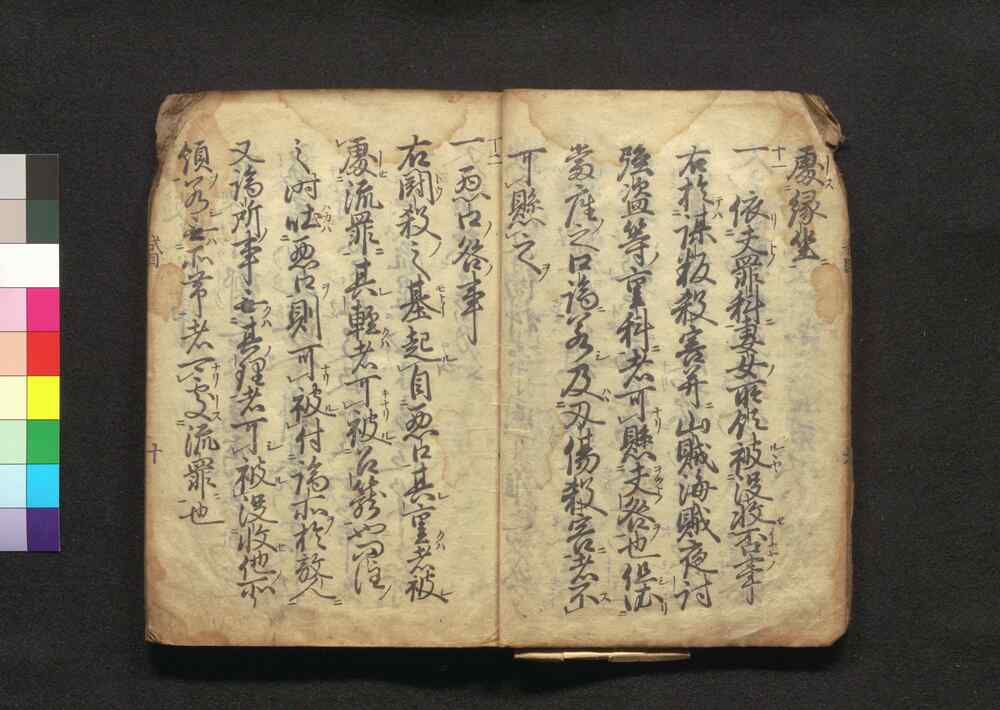 處縁坐
十一
一 依夫罪科妻女所領被没收否事
右於謀叛殺害并山賊海賊夜討
強盗等重科者可懸夫咎也但依
當座之口論若及刃傷殺害者不
可懸之
十二
一悪口咎事
右闘殺之基起自悪口其重者被
處流罪其輕者可被召篭也問注
之時吐悪口則可被付論所於敵人
又論所事无其理者可被没收他所
領若无所帯者可處流罪也
式目 十